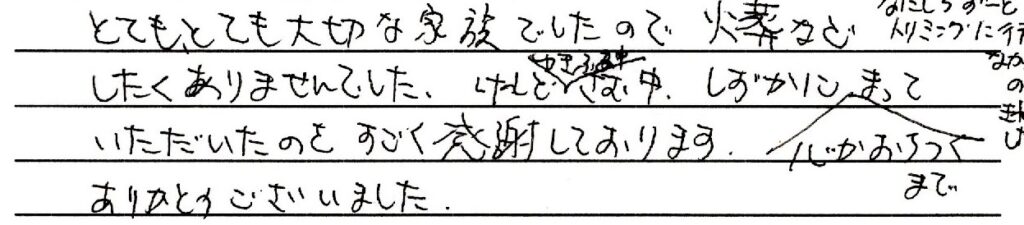 とても、とても大切な家族でしたので 火葬など
したくありませんでした、けれど さむい中、しずかに まって
いただいたのを すごく感謝しております.
心がおちつく
まで
ありがとうございました.
トリミングに行
なか
の